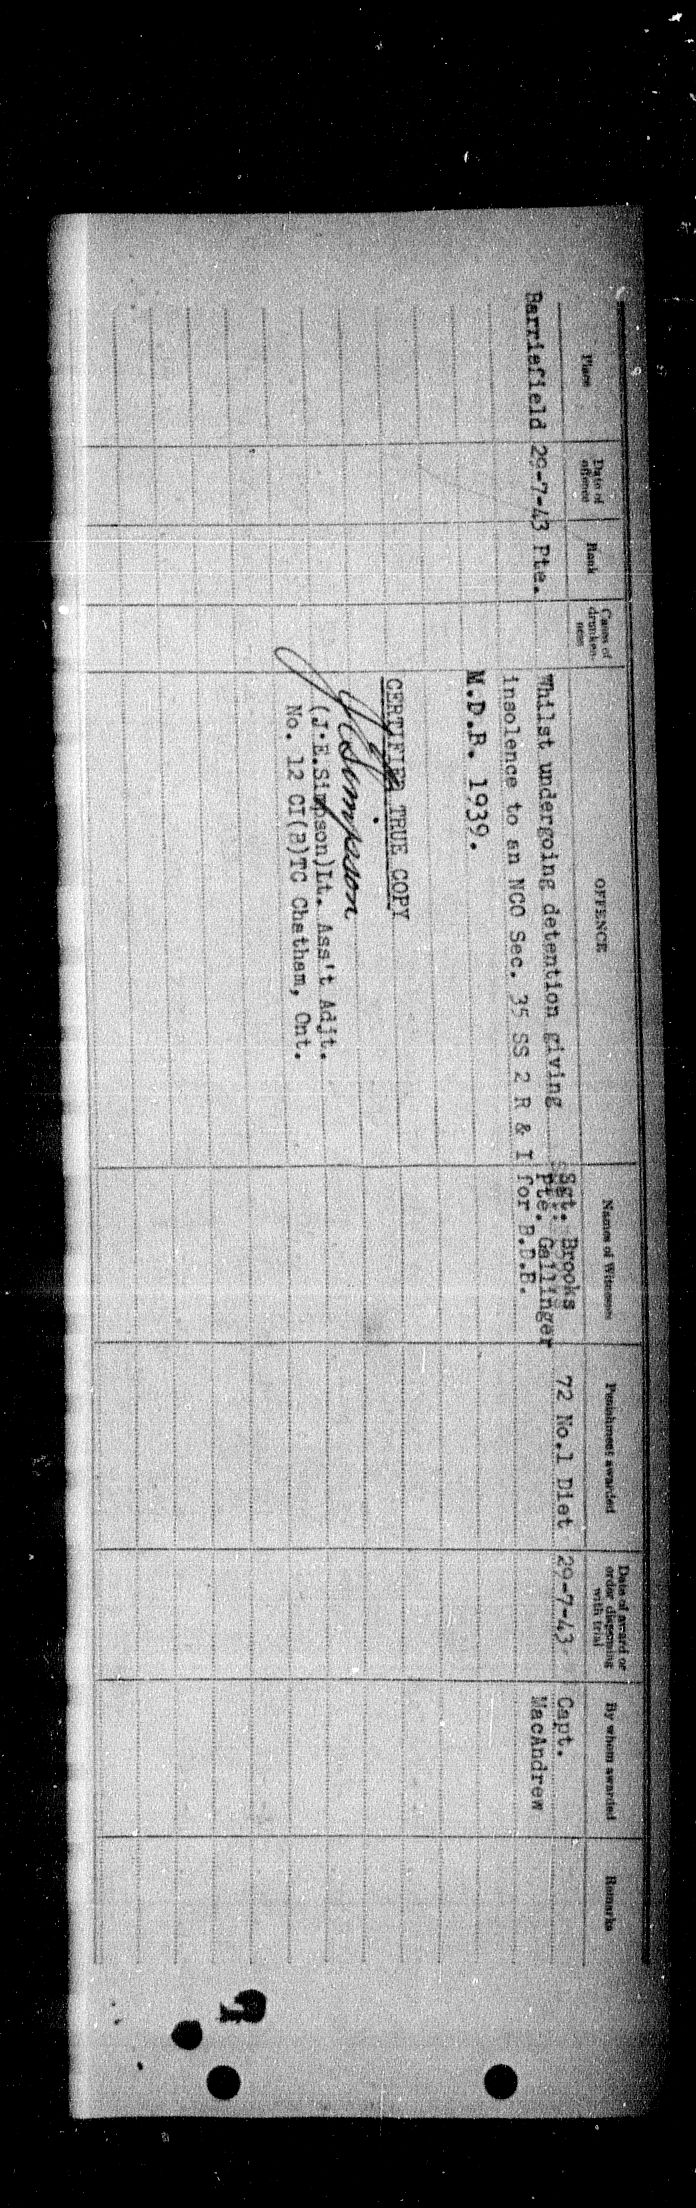 Place
Date of offence
Rank
Cases of drunkenness
OFFENCE
Names of Witnesses
Punishment awarded
Date of award or order dispensing with trial
By whom awarded
Remarks
Barriefield 29-7-43 Pte.
Whilst undergoing detention giving
insolence to an NCO Sec. 35 SS 2 R & I
M.D.B. 1939.
Sgt. Brooks
Pte. Gallinger
for B.D.B.
72 No.1 Diet
29-7-43
Capt.
MacAndrew
CERTIFIED TRUE COPY
JESimpson
(J.E.Simpson)Lt. Ass't Adjt.
No. 12 CI(B)TC Chatham, Ont.